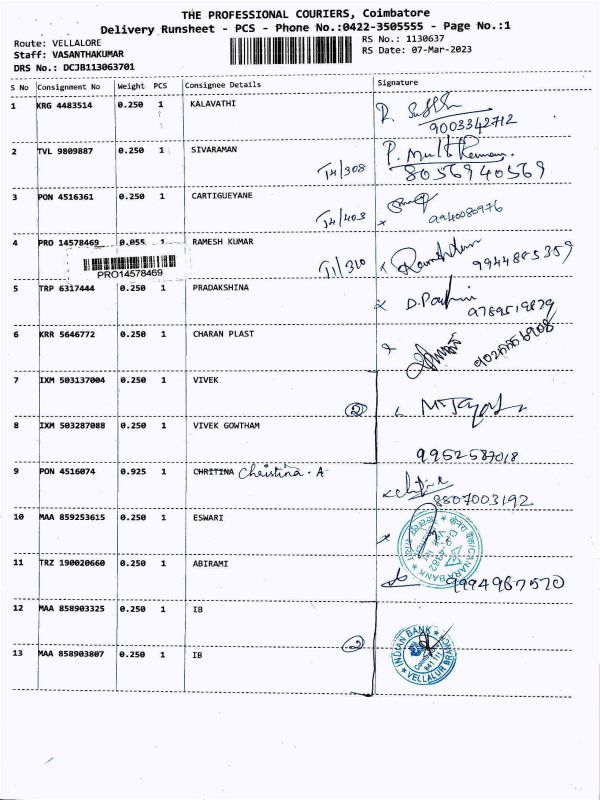 THE PROFESSIONAL COURIERS, Coimbatore
Delivery Runsheet - PCS - Phone No.:0422-3505555 - Page No.:1
Route: VELLALORE
RS No.: 1130637
Staff: VASANTHAKUMAR
RS Date: 07-Mar-2023
DRS No.: DCJB113063701
S No Consignment No Weight PCS Consignee Details Signature
1 KRG 4483514 0.250 1 KALAVATHI
9003342712
2 TVL 9809887 0.250 1 SIVARAMAN
T4/308 8056940569
3 PON 4516361 0.250 1 CARTIGUEYANE
T4/403 9940080976
4 PRO 14578469 0.055 1 RAMESH KUMAR
T1/310 9944885359
PRO14578469
5 TRP 6317444 0.250 1 PRADAKSHINA
9789519829
6 KRR 5646772 0.250 1 CHARAN PLAST
7 IXM 503137004 0.250 1 VIVEK
2
8 IXM 503287088 0.250 1 VIVEK GOWTHAM
9952587018
9 PON 4516074 0.925 1 CHRITINA Christina. A
8807003192
10 MAA 859253615 0.250 1 ESWARI
CANARA BANK
11 TRZ 190020660 0.250 1 ABIRAMI
9994967570
12 MAA 858903325 0.250 1 IB
2
INDIAN BANK
VELLALUR BRANCH
13 MAA 858903807 0.250 1 IB